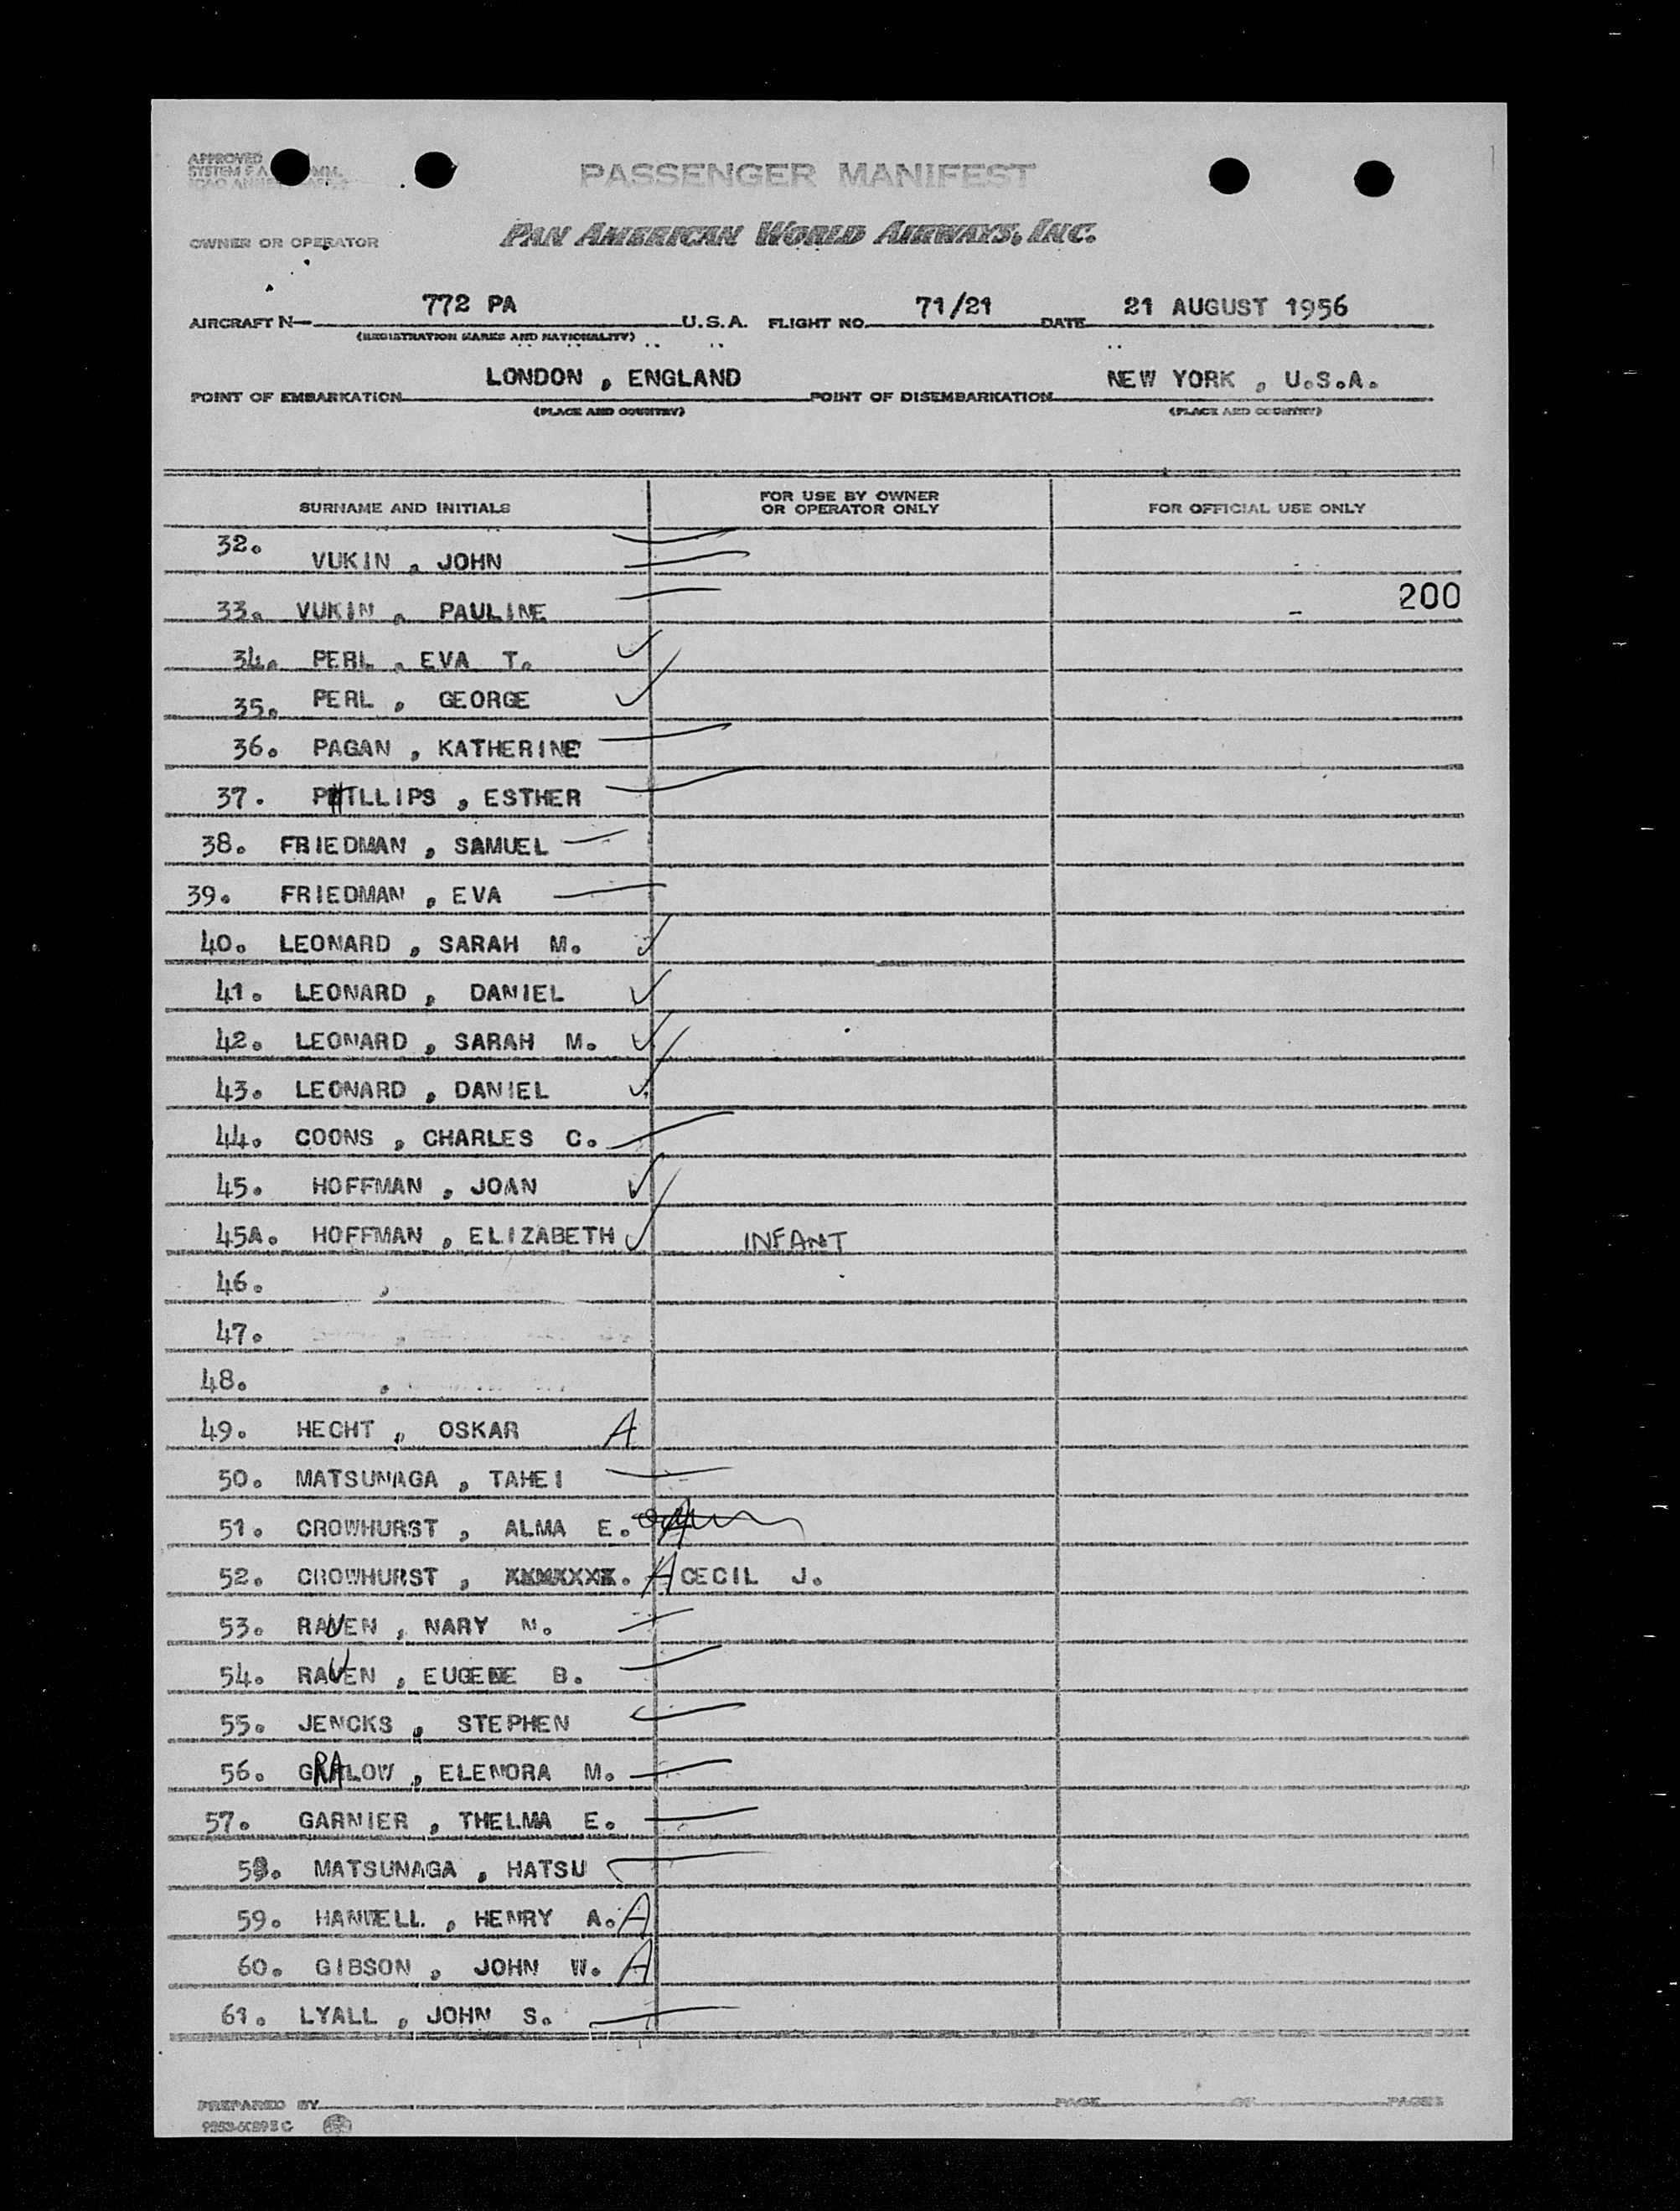 APPROVED
SYSTEM F.A. MM.
PASSENGER MANIFEST
OWNER OR OPERATOR PAN AMERICAN WORLD AIRWAYS, INC.
AIRCRAFT N— 772 PA U.S.A. FLIGHT NO. 71/21 DATE 21 AUGUST 1956
(REGISTRATION MARKS AND NATIONALITY)
POINT OF EMBARKATION LONDON , ENGLAND POINT OF DISEMBARKATION NEW YORK , U.S.A.
(PLACE AND COUNTRY) (PLACE AND COUNTRY)
SURNAME AND INITIALS FOR USE BY OWNER OR OPERATOR ONLY FOR OFFICIAL USE ONLY
32. VUKIN , JOHN
33. VUKIN , PAULINE 200
34. PERL , EVA T.
35. PERL , GEORGE
36. PAGAN , KATHERINE
37. PHILLIPS , ESTHER
38. FRIEDMAN , SAMUEL
39. FRIEDMAN , EVA
40. LEONARD , SARAH M.
41. LEONARD , DANIEL
42. LEONARD , SARAH M.
43. LEONARD , DANIEL
44. COONS , CHARLES C.
45. HOFFMAN , JOAN
45A. HOFFMAN , ELIZABETH INFANT
46. ,
47. ,
48. ,
49. HECHT , OSKAR A
50. MATSUNAGA , TAHEI
51. CROWHURST , ALMA E. A
52. CROWHURST , XXMXXXX. A CECIL J.
53. RAVEN , NARY N.
54. RAVEN , EUGENE B.
55. JENCKS , STEPHEN
56. GRALOW , ELENORA M.
57. GARNIER , THELMA E.
58. MATSUNAGA , HATSU
59. HANWELL , HENRY A. A
60. GIBSON , JOHN W. A
61. LYALL , JOHN S.
PREPARED BY PAGE OF PAGES